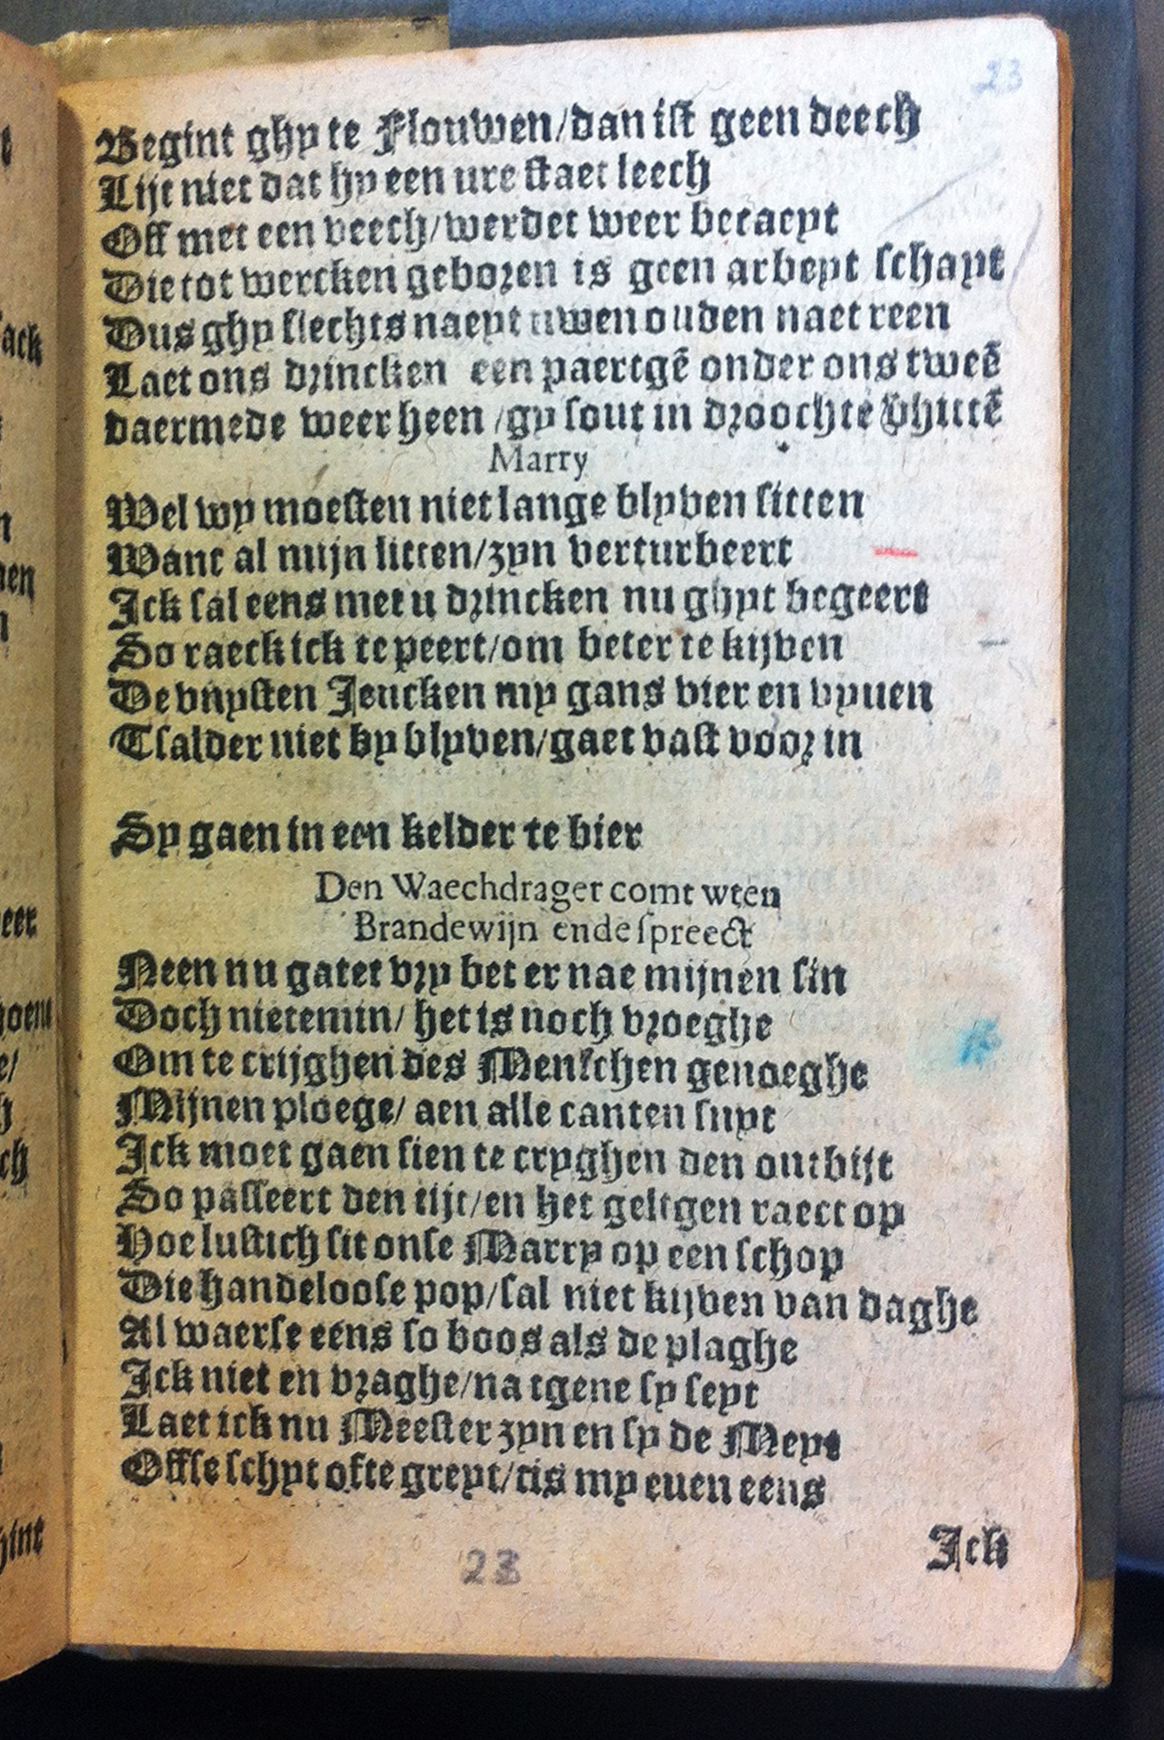 23
Begint ghy te Flouwen/dan ist geen deech
Lijt niet dat hy een ure staet leech
Off met een veech/werdet weer betaept
Die tot wercken geboren is geen arbeyt schapt
Dus ghy slechts naeyt uwen ouden naet reen
Laet ons drincken een paertgē onder ons tweē
daermede weer heen /gy sout in droochte
Marry
Wel wy moesten niet lange blyven sitten
Want al mijn litten/zyn verturbeert
Ick sal eens met u drincken nu ghyt begeert
So raeck ick te peert/om beter te kijven
De vuysten Jeucken my gans vier en vyuen
Tsalder niet by blyven/gaet vast voor in
Sy gaen in een kelder te bier
Den Waechdrager comt wten
Brandewijn ende spreect
Neen nu gatet vry bet er nae mijnen sin
Doch nietemin/ het is noch vroeghe
Om te crijghen des Menschen genoeghe
Mijnen ploege/ aen alle canten snyt
Ick moet gaen sien te cryghen den ontbijt
So passeert den tijt/en het geltgen raect op
Hoe lustich sit onse Marry op een schop
Die handeloose pop/sal niet kijven van daghe
Al waerse eens so boos als de plaghe
Ick niet en vraghe/na tgene sy seyt
Laet ick nu Meester zyn en sy de Meyt
Offse schyt ofte greyt/tis my euen eens
Ick
23